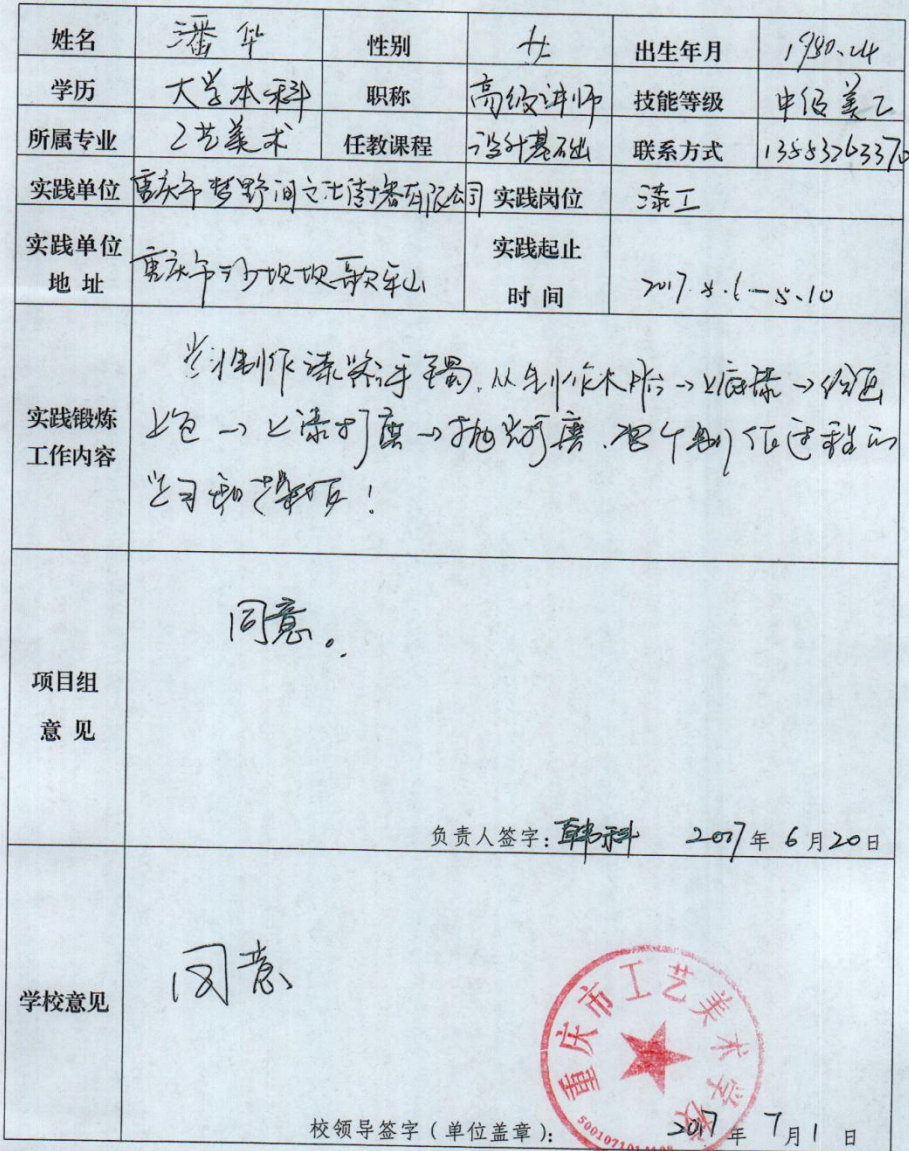 姓名 潘华 性别 女 出生年月 1980.04
学历 大学本科 职称 高级讲师 技能等级 中级美工
所属专业 工艺美术 任教课程 设计基础 联系方式 13883263370
实践单位 重庆市梦野间文化传播有限公司 实践岗位 漆工
实践单位 地址 重庆市沙坪坝歌乐山 实践起止 时间 2017.5.1—5.10
实践锻炼
工作内容
学习制作漆器手镯,从制作木胎→上底漆→
上色→上漆打磨→抛光打磨.整个制作过程的
学习和
项目组
意见
同意。
负责人签字:韩科 2017年6月20日
学校意见
同意
重庆市工艺美术学校
校领导签字(单位盖章): 2017年7月1日